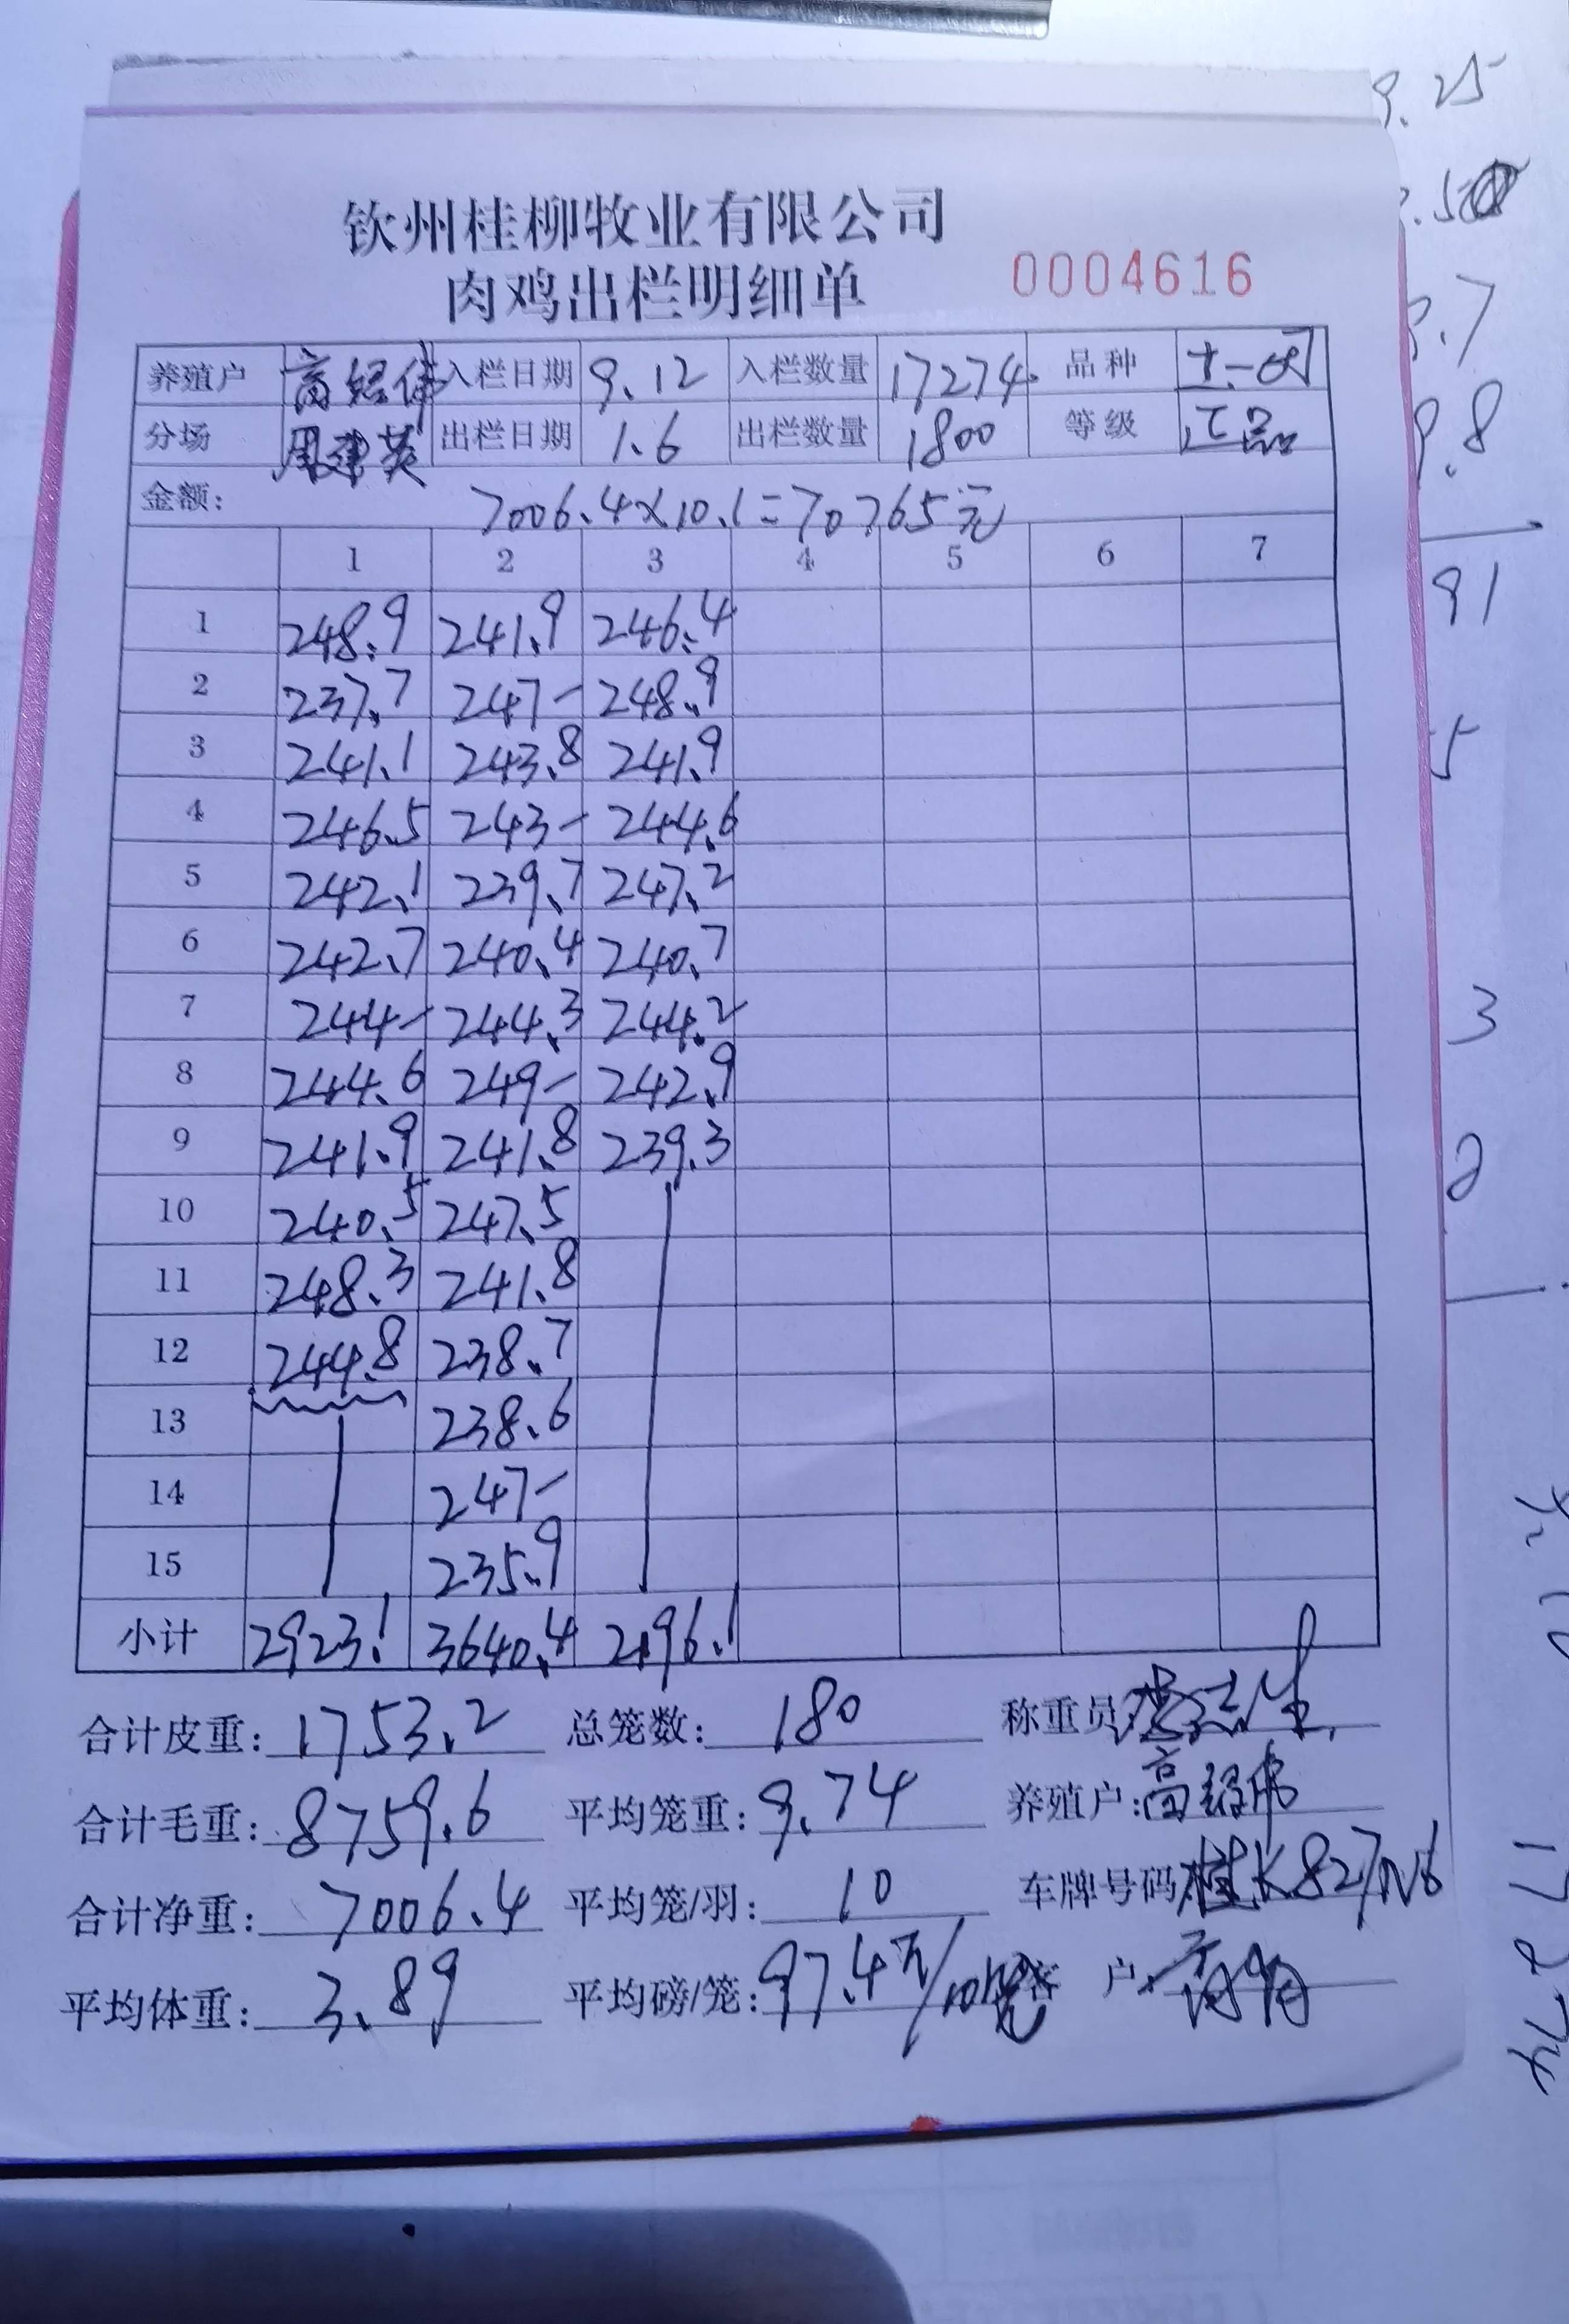 钦州桂柳牧业有限公司
肉鸡出栏明细单 0004616
养殖户 入栏日期 9.12 入栏数量 17274 品种
分场 周建英 出栏日期 1.6 出栏数量 1800 等级 正品
金额: 7006.4×10.1=70765元
1 2 3 4 5 6 7
1 248.9 241.9 246.4
2 237.7 247- 248.9
3 241.1 243.8 241.9
4 246.5 243- 244.6
5 242.1 239.7 247.2
6 242.7 240.4 240.7
7 244- 244.3 244.2
8 244.6 249- 242.9
9 241.9 241.8 239.3
10 240.5 247.5
11 248.3 241.8
12 244.8 238.7
13 238.6
14 247-
15 235.9
小计 2923.1 3640.4 2196.1
合计皮重: 1753.2 总笼数: 180 称重员
合计毛重: 8759.6 平均笼重: 9.74 养殖户:
合计净重: 7006.4 平均笼/羽: 10 车牌号码: 桂K827N6
平均体重: 3.89 平均磅/笼: 97.4斤/10 客 户:
9.25
.50
9.7
9.8
91
5
3
2